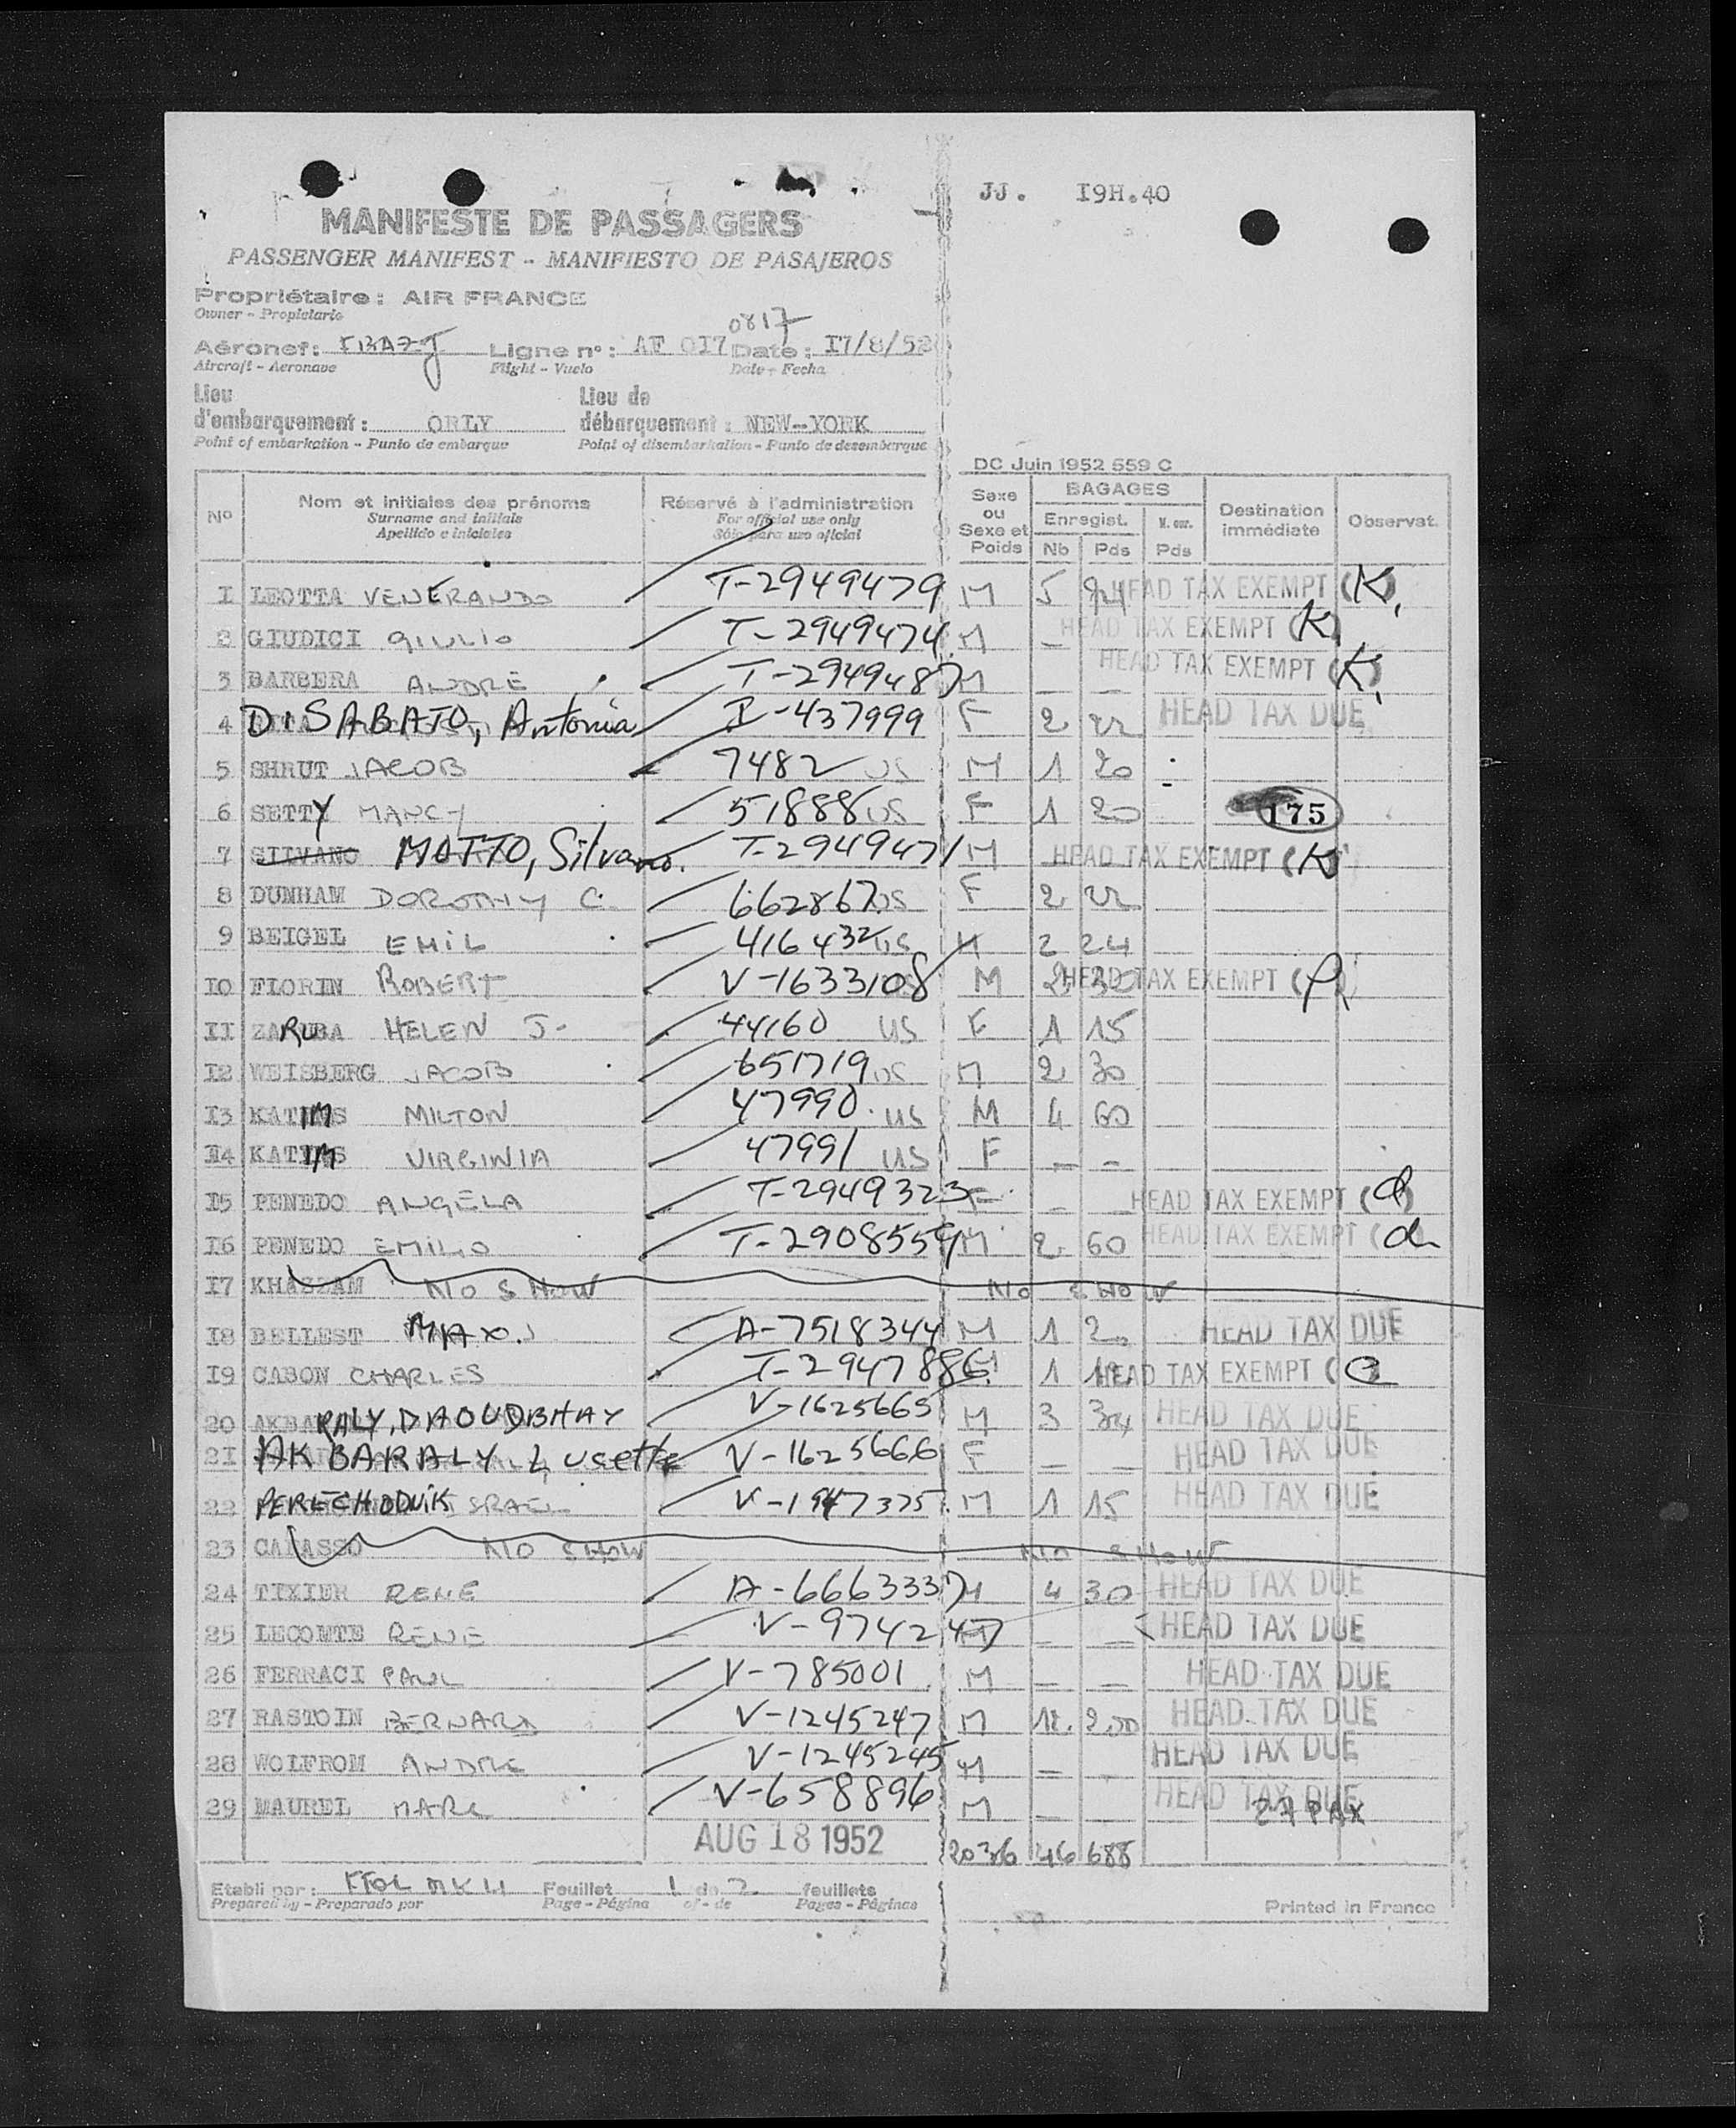 JJ. I9H.40
MANIFESTE DE PASSAGERS
PASSENGER MANIFEST - MANIFIESTO DE PASAJEROS
Propriétaire : AIR FRANCE
Owner - Propietario
0817
Aéronef : FBAZJ Ligne n° : AF 017 Date : I7/8/52
Aircraft - Aeronave Flight - Vuelo Date - Fecha
Lieu d'embarquement : ORLY Lieu de débarquement : NEW-YORK
Point of embarkation - Punto de embarque Point of disembarkation - Punto de desembarque
DC Juin 1952 559 C
N° Nom et initiales des prénoms Réservé à l'administration Sexe ou Sexe et Poids BAGAGES Destination immédiate Observat.
Surname and initials For official use only Enregist. M. enr.
Apellido e iniciales Sólo para uso oficial Nb Pds Pds
I LEOTTA VENERANDO T-2949479 M 5 94 HEAD TAX EXEMPT (K)
2 GIUDICI GIULIO T-2949474 M - HEAD TAX EXEMPT (K)
3 BARBERA ANDRE T-2949487 M - - HEAD TAX EXEMPT (K)
4 DISABATO, Antonia I-437999 F 2 22 HEAD TAX DUE
5 SHRUT JACOB 7482 US M 1 20
6 SETTY NANCY 51888 US F 1 20 175
7 SILVANO MOTTO, Silvano. T-2949471 M HEAD TAX EXEMPT (K)
8 DUNHAM DOROTHY C. 662867 US F 2 22
9 BEIGEL EMIL 416432 US M 2 24
I0 FLORIN ROBERT V-1633108 M 2 30 HEAD TAX EXEMPT
II ZARUBA HELEN J- 44160 US F 1 15
I2 WEISBERG JACOB 651719 US M 2 30
I3 KATIMS MILTON 47990 US M 4 60
I4 KATIMS VIRGINIA 47991 US F - -
I5 PENEDO ANGELA T-2949323 F - - HEAD TAX EXEMPT
I6 PENEDO EMILIO T-2908559 M 2 60 HEAD TAX EXEMPT
I7 KHASZAM NO SHOW NO SHOW
I8 BELLEST MAX. A-7518344 M 1 20 HEAD TAX DUE
I9 CABON CHARLES T-2947886 M 1 HEAD TAX EXEMPT
20 AKBARALY, DAOUDBHAY V-1625665 M 3 34 HEAD TAX DUE
2I AKBARALY Lusette V-1625666 F - - HEAD TAX DUE
22 PERECHODNIK ISRAEL V-1947375 M 1 15 HEAD TAX DUE
23 CALASSO NO SHOW NO SHOW
24 TIXIER RENE A-6663337 M 4 30 HEAD TAX DUE
25 LECOMTE RENE V-974247 M - - HEAD TAX DUE
26 FERRACI PAUL V-785001 M - - HEAD TAX DUE
27 RASTOIN BERNARD V-1245247 M 12 200 HEAD TAX DUE
28 WOLFROM ANDRE V-1245245 M - - HEAD TAX DUE
29 MAUREL MARC V-658896 M - HEAD TAX DUE
27 PAX
AUG 18 1952 2036 46 688
Etabli par : Feuillet 1 de 2 feuillets
Prepared by - Preparado por Page - Página of - de Pages - Páginas Printed in France